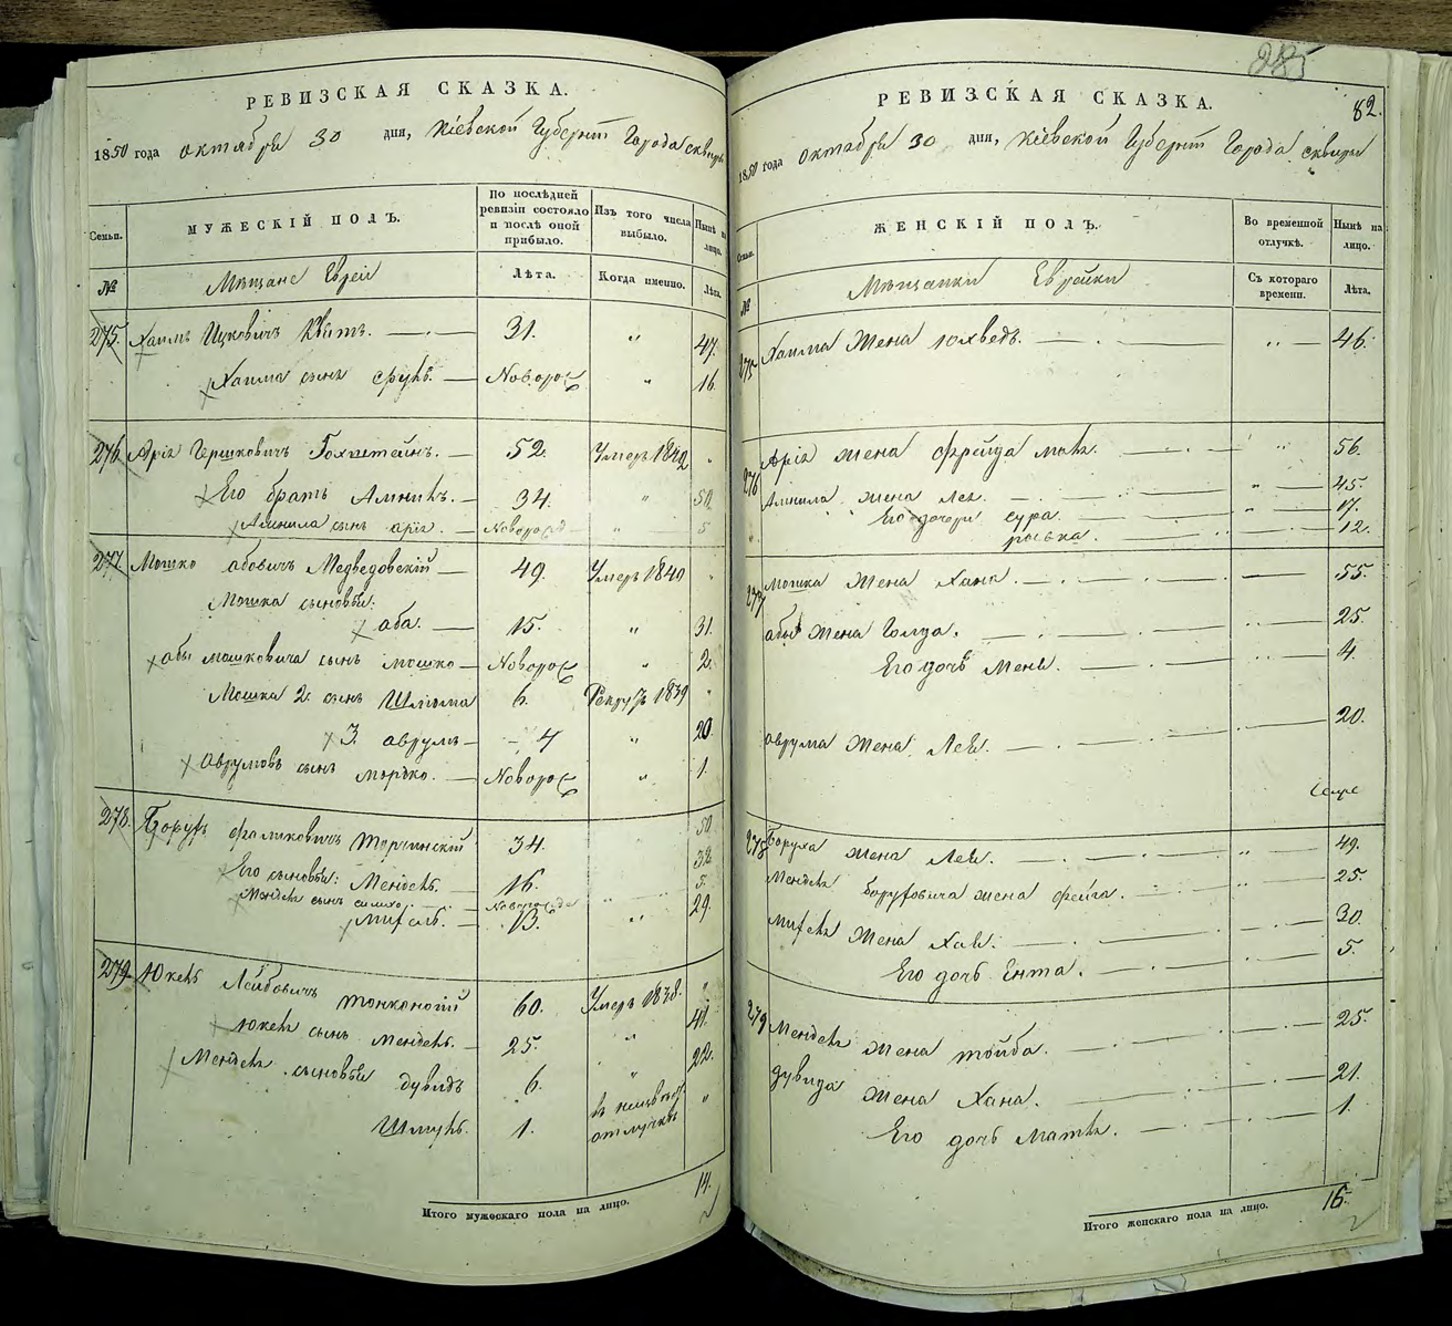 РЕВИЗСКАЯ СКАЗКА.
1850 года октября 30 дня, Кіевской Губерніи Города Сквиры
Семьи.
МУЖЕСКІЙ ПОЛЪ.
По послѣдней ревизіи состояло и послѣ оной прибыло.
Изъ того числа выбыло.
Нынѣ на лицо.
№
Мѣщане Евреи
Лѣта.
Когда именно.
Лѣта.
275. Хаимъ Ицковичъ Квитъ. 31. " 47.
Хаима сынъ Сруль. Новорож " 16.
276. Арія Гершковичъ Гохштейнъ. 52. Умеръ 1842 "
Его братъ 34. " 50.
сынъ Арія. Новорожд " 5
277. Мошко Абовичъ Медведовскій 49. Умеръ 1840 "
Мошка сыновья:
Аба. 15. " 31.
Абы Мошковича сынъ Мошко Новорож " 2.
Мошка 2. сынъ Шлиома 6. Рекрутъ 1839 "
3. Аврумъ 4 " 20.
Аврумовъ сынъ Моръко. Новорож " 1.
278. Борухъ Фаликовичъ 34. 50
Его сыновья: Мендель. 16. 32.
Мендель сынъ Новорожде " 5.
Михель. 13. " 29.
279. Юкель Лейбовичъ Тонконогій 60. Умеръ 1838. "
Юкеля сынъ Мендель. 25. " 41.
Менделя сыновья Дувидъ 6. " 22.
Шмуль. 1. въ отлучкѣ "
Итого мужескаго пола на лицо. 14.
285
82.
РЕВИЗСКАЯ СКАЗКА.
1850 года октября 30 дня, Кіевской Губерніи Города Сквиры
Семьи.
ЖЕНСКІЙ ПОЛЪ.
Во временной отлучкѣ.
Нынѣ на лицо.
№
Мѣщанки Еврейки
Съ котораго времени.
Лѣта.
275 Хаима жена Юхведъ. " 46.
276 Арія жена Фрейда " 56.
жена Лея. " 45.
Его дочери Сура. " 17.
12.
277 Мошка жена Хана. " 55.
Абы жена Голда. 25.
Его дочь Меня. " 4.
Аврума жена Лея. 20.
278 Боруха жена Лея. " 49.
Менделя Боруховича жена Фейга. " 25.
Михеля жена Хая. 30.
Его дочь Ента. 5.
279 Менделя жена Тойба. 25.
Дувида жена Хана. 21.
Его дочь Матля. 1.
Итого женскаго пола на лицо. 16.